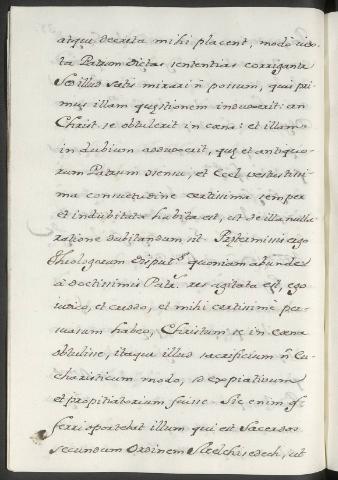 atque decreta mihi placent, modò iux-
ta Patrum dictas sententias corrigantr
Sed illud satis mirari n possum, quis pri
mus illam quęstionem induxerit: an
Christ. se obtulerit in cœna: et illam
in dubium adduxerit, quę et antiquo-
rum Patrum sensu, et Eccl. vetustissi
ma consuetudine certissima semper
et indubitata habita est, ut de illa nulla
ratione dubitandum sit. Prętermissis ergo
Theologorum disput. quoniam abunde
à doctissimis Patr. res agitata est, ego
iudico, et credo, et mihi certissimè per-
suasum habeo, Christum se in cœna
obtulisse, itaque illud sacrificium n Eu-
charisticum modo, sed expiatiuum
et propitiatorium fuisse. Sic enim
ferri oportebat illum qui est Sacerdos
secundum Ordinem Melchisedech, ut